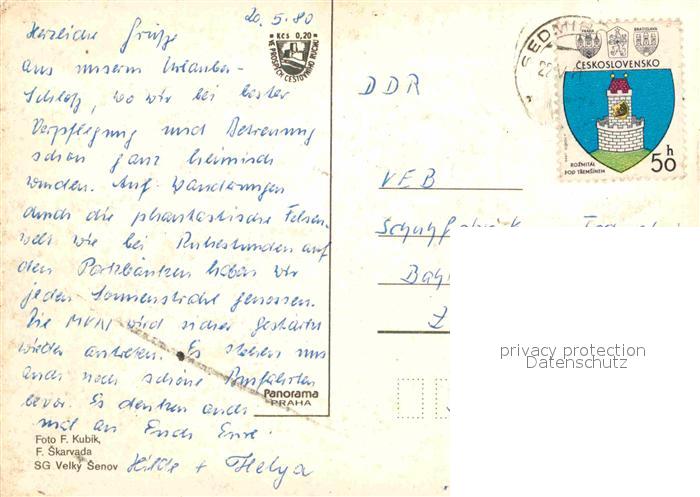 20.5.80
Herzliche Grüße
aus unserem Urlauber-
Schloß, wo wir bei bester
Verpflegung und Betreuung
schon ganz heimisch
wurden. Auf Wanderungen
durch die phantastische Felsen-
welt wie bei Ruhestunden auf
den Parkbänken haben wir
jeden Sonnenstrahl genossen.
Die wird sicher gestärkt
wieder antreten. Es stehen uns
auch noch schöne Busfahrten
bevor. Es denken auch
mal an Euch Eure
Hilde + Helga
Kčs 0,20
VE PROSPĚCH CESTOVNÍHO RUCHU
Panorama
PRAHA
Foto F. Kubík,
F. Škarvada
SG Velký Šenov
DDR
VEB
PRAHA
BRATISLAVA
ČESKOSLOVENSKO
ROŽMITÁL
POD TŘEMŠÍNEM
50 h
privacy protection
Datenschutz